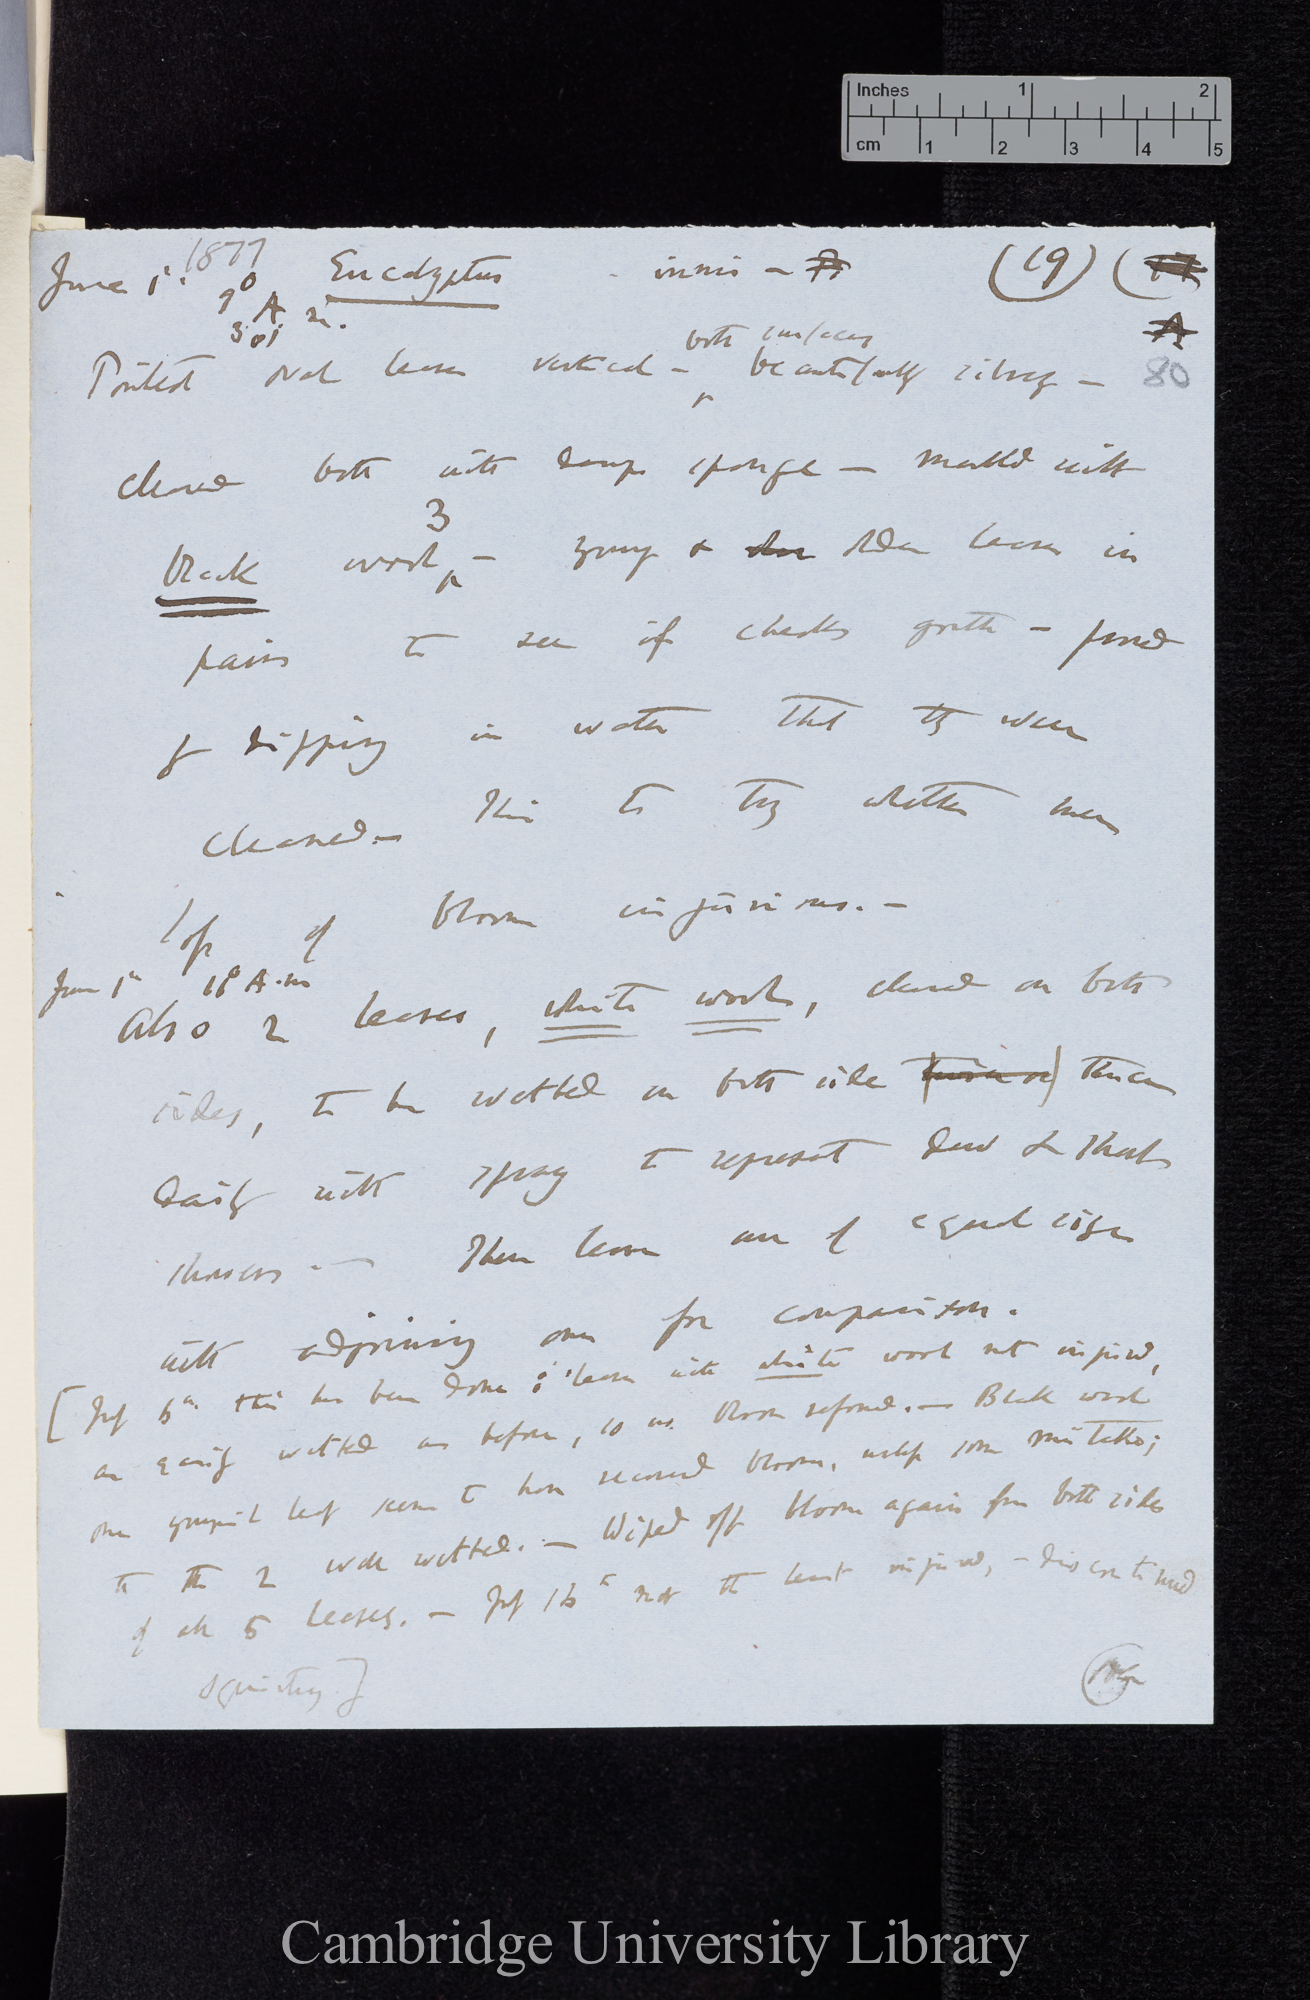 Inches 1 2
cm 1 2 3 4 5
June 1. 1877 Eucalyptus (19) (17
9° A
30' m.
A
both surfaces
Pointed oval leaves vertical – beautifully silvery – 80
cleaned both with damp sponge – marked with
3
black wool – young & older leaves in
pairs to see if checks growth – found
by dipping in water that they were
cleaned – This to try whether mere
loss of bloom injurious. –
June 1st A.m
Also 2 leaves, white wool, cleaned on both
sides, to be wetted on both side (twice or) thrice
daily with spray to represent dew & short
showers. – These leaves are of equal size
with adjoining ones for comparison.
[July 6th. this has been done & leaves with white wool not injured,
as easily wetted as before, so no bloom reformed. – Black wool
one youngest leaf seems to have secreted bloom, unless some mistake;
to the 2 were wetted. – Wiped off bloom again from both sides
of all 5 leaves. – July 16th not the least injured, – discontinued
squirting]
Cambridge University Library